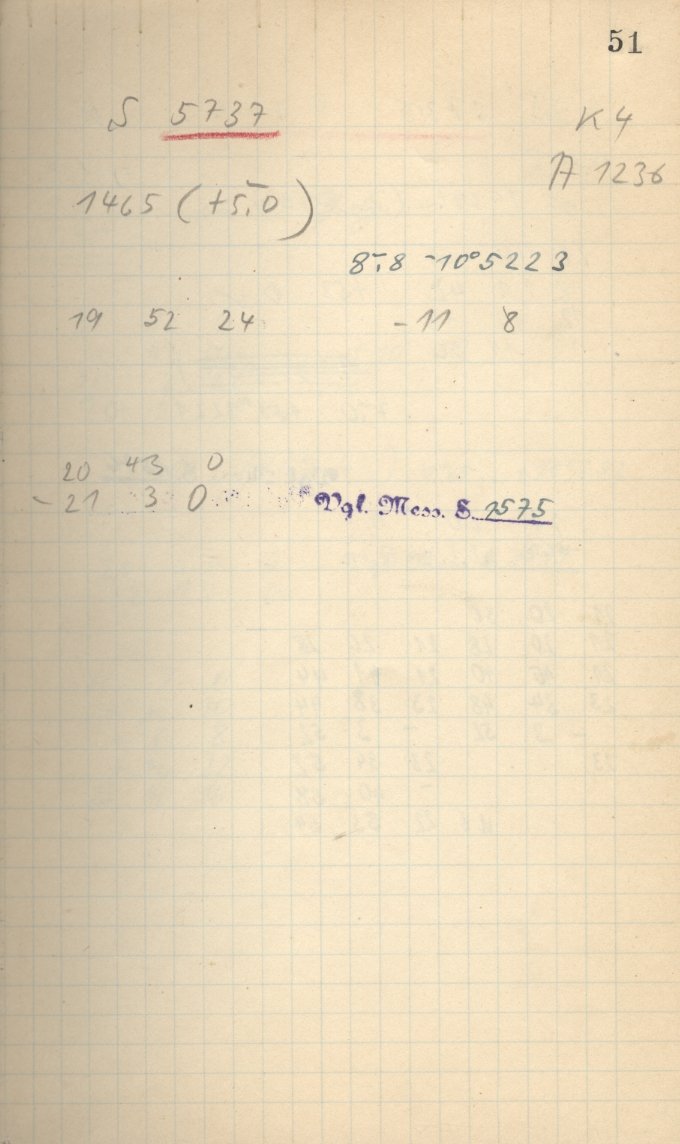 51
S 5737
K 4
A 1236
1465 (+5,0)
8,8 -10° 5223
19 52 24 - 11 8
20 43 0
- 21 3 0 Vgl. Mess. S. 1575